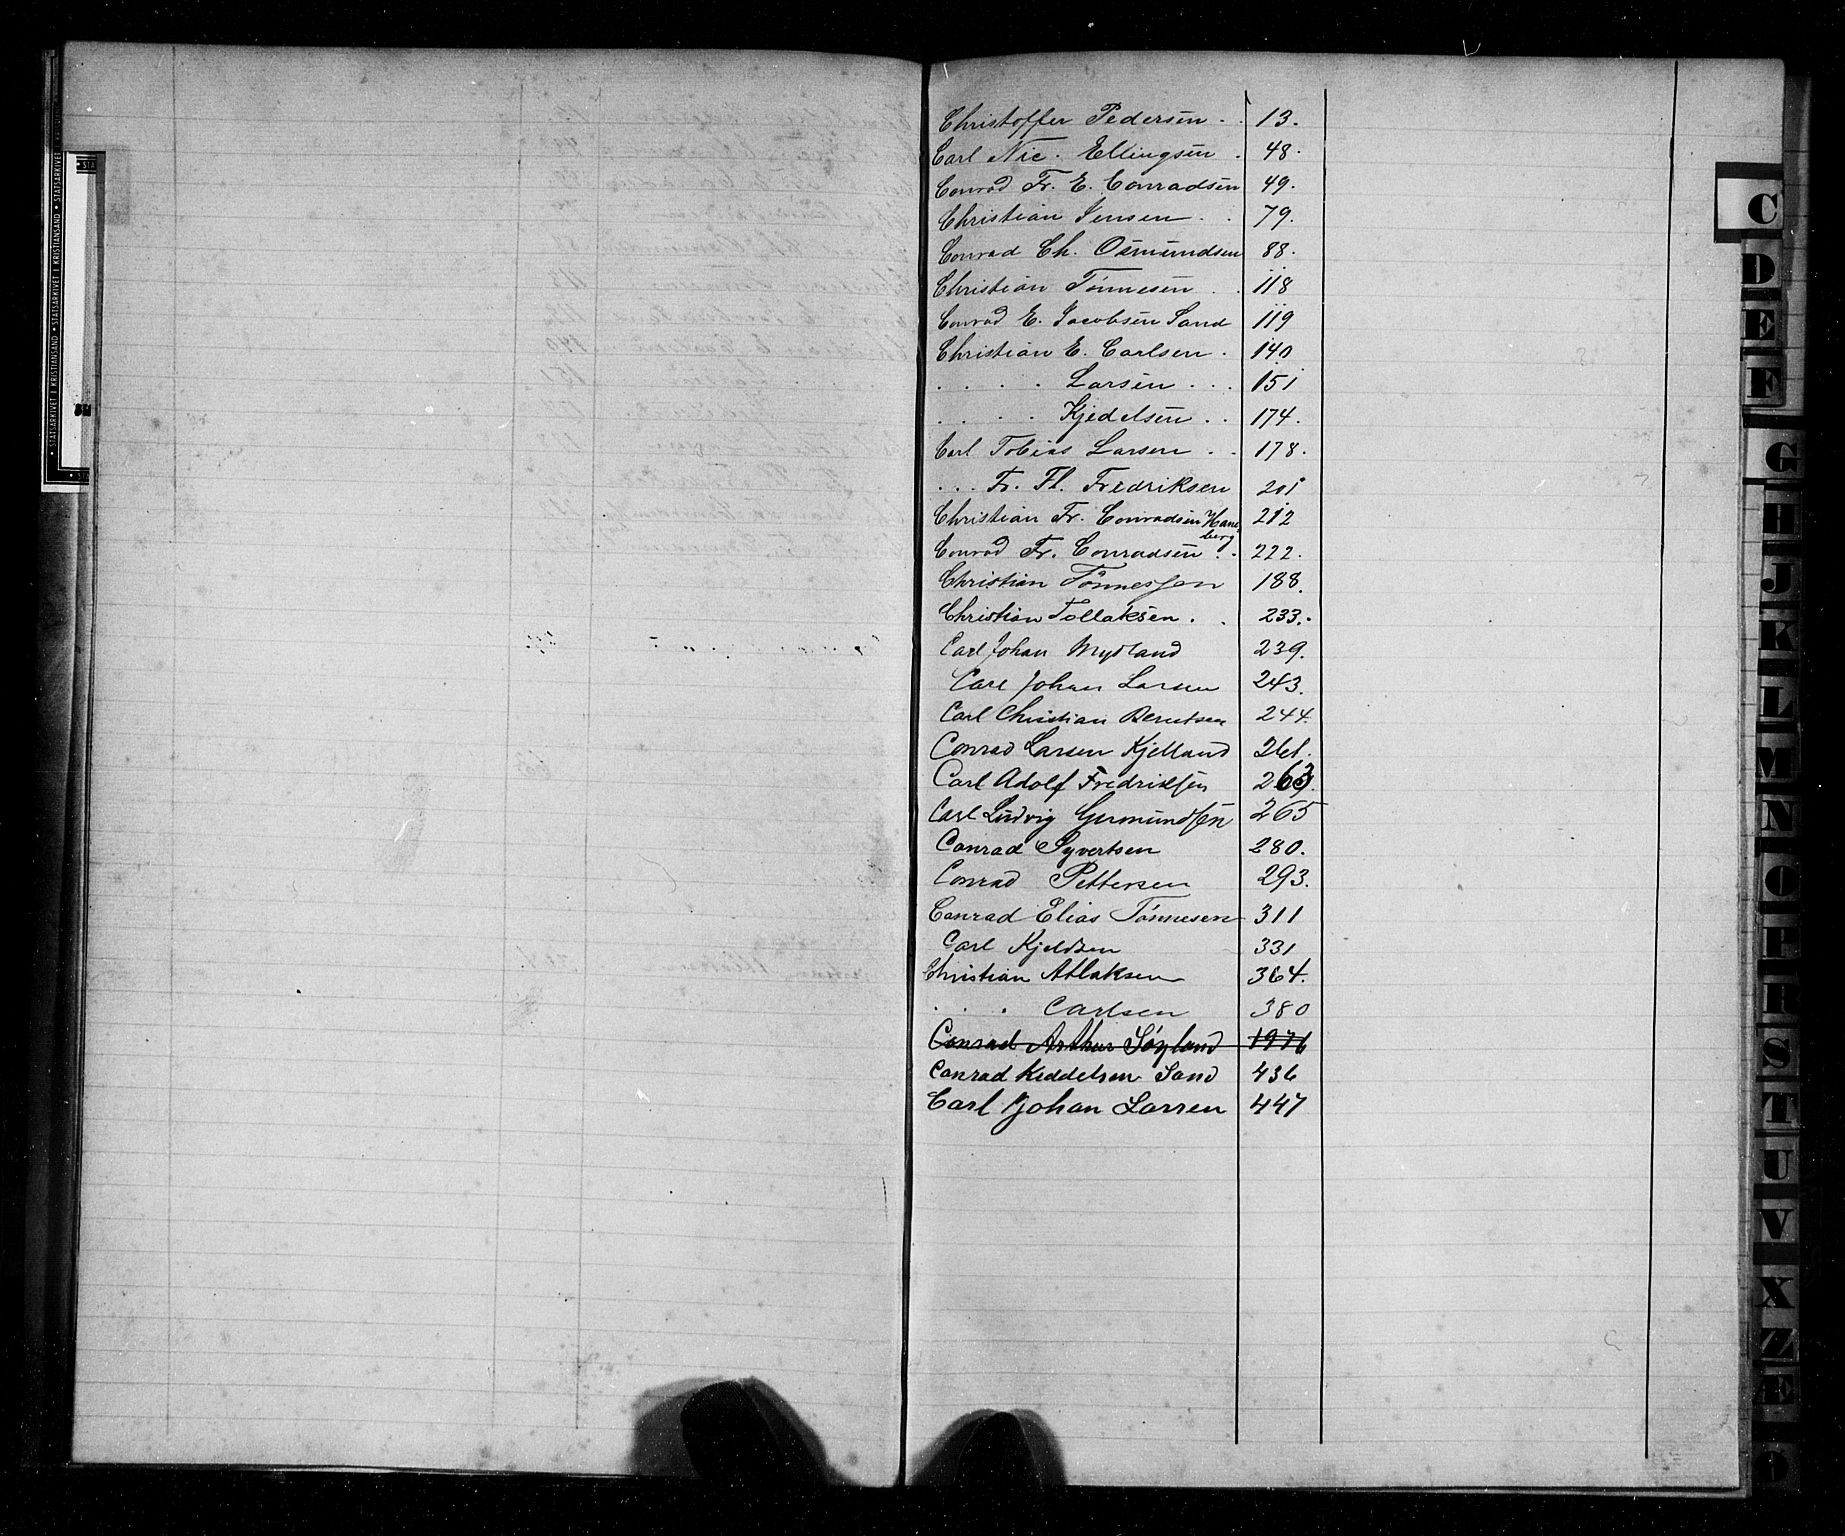 Christoffer Pedersen . . 13.
Carl Nic. Ellingsen . 48.
Conrad Fr. E. Conradsen 49.
Christian Jensen . . 79.
Conrad Ch. Osmundsen 88.
Christian Tönnesen . . 118
Conrad E. Jacobsen Sand 119
Christian E. Carlsen . 140
. . . . Larsen . . . 151
. . . Kjedelsen . . 174.
Carl Tobias Larsen . . 178.
. . . Fr. Fl. Fredriksen 201
Christian Fr. Conradsen Haneberg 212
Conrad Fr. Conradsen . . 222.
Christian Tönnessen 188.
Christian Tollaksen . . 233.
Carl Johan Mydland 239.
Carl Johan Larsen 243.
Carl Christian Berntsen 244.
Conrad Larsen Kjelland 261.
Carl Adolf Fredriksen 263.
Carl Ludvig Germundsen 265
Conrad Syvertsen 280.
Conrad Pettersen 293.
Conrad Elias Tönnesen 311
Carl Kjeldsen 331
Christian Atlaksen 364.
. . . Carlsen 380
Conrad Arthur Söyland 1976
Conrad Keddelsen Sand 436
Carl Johan Larsen 447
C
D
E
F
G
H
J
K
L
M
N
O
P
R
S
T
U
V
X
Z
Æ
Ø
STATSARKIVET I KRISTIANSAND • STATSARKIVET I KRISTIANSAND